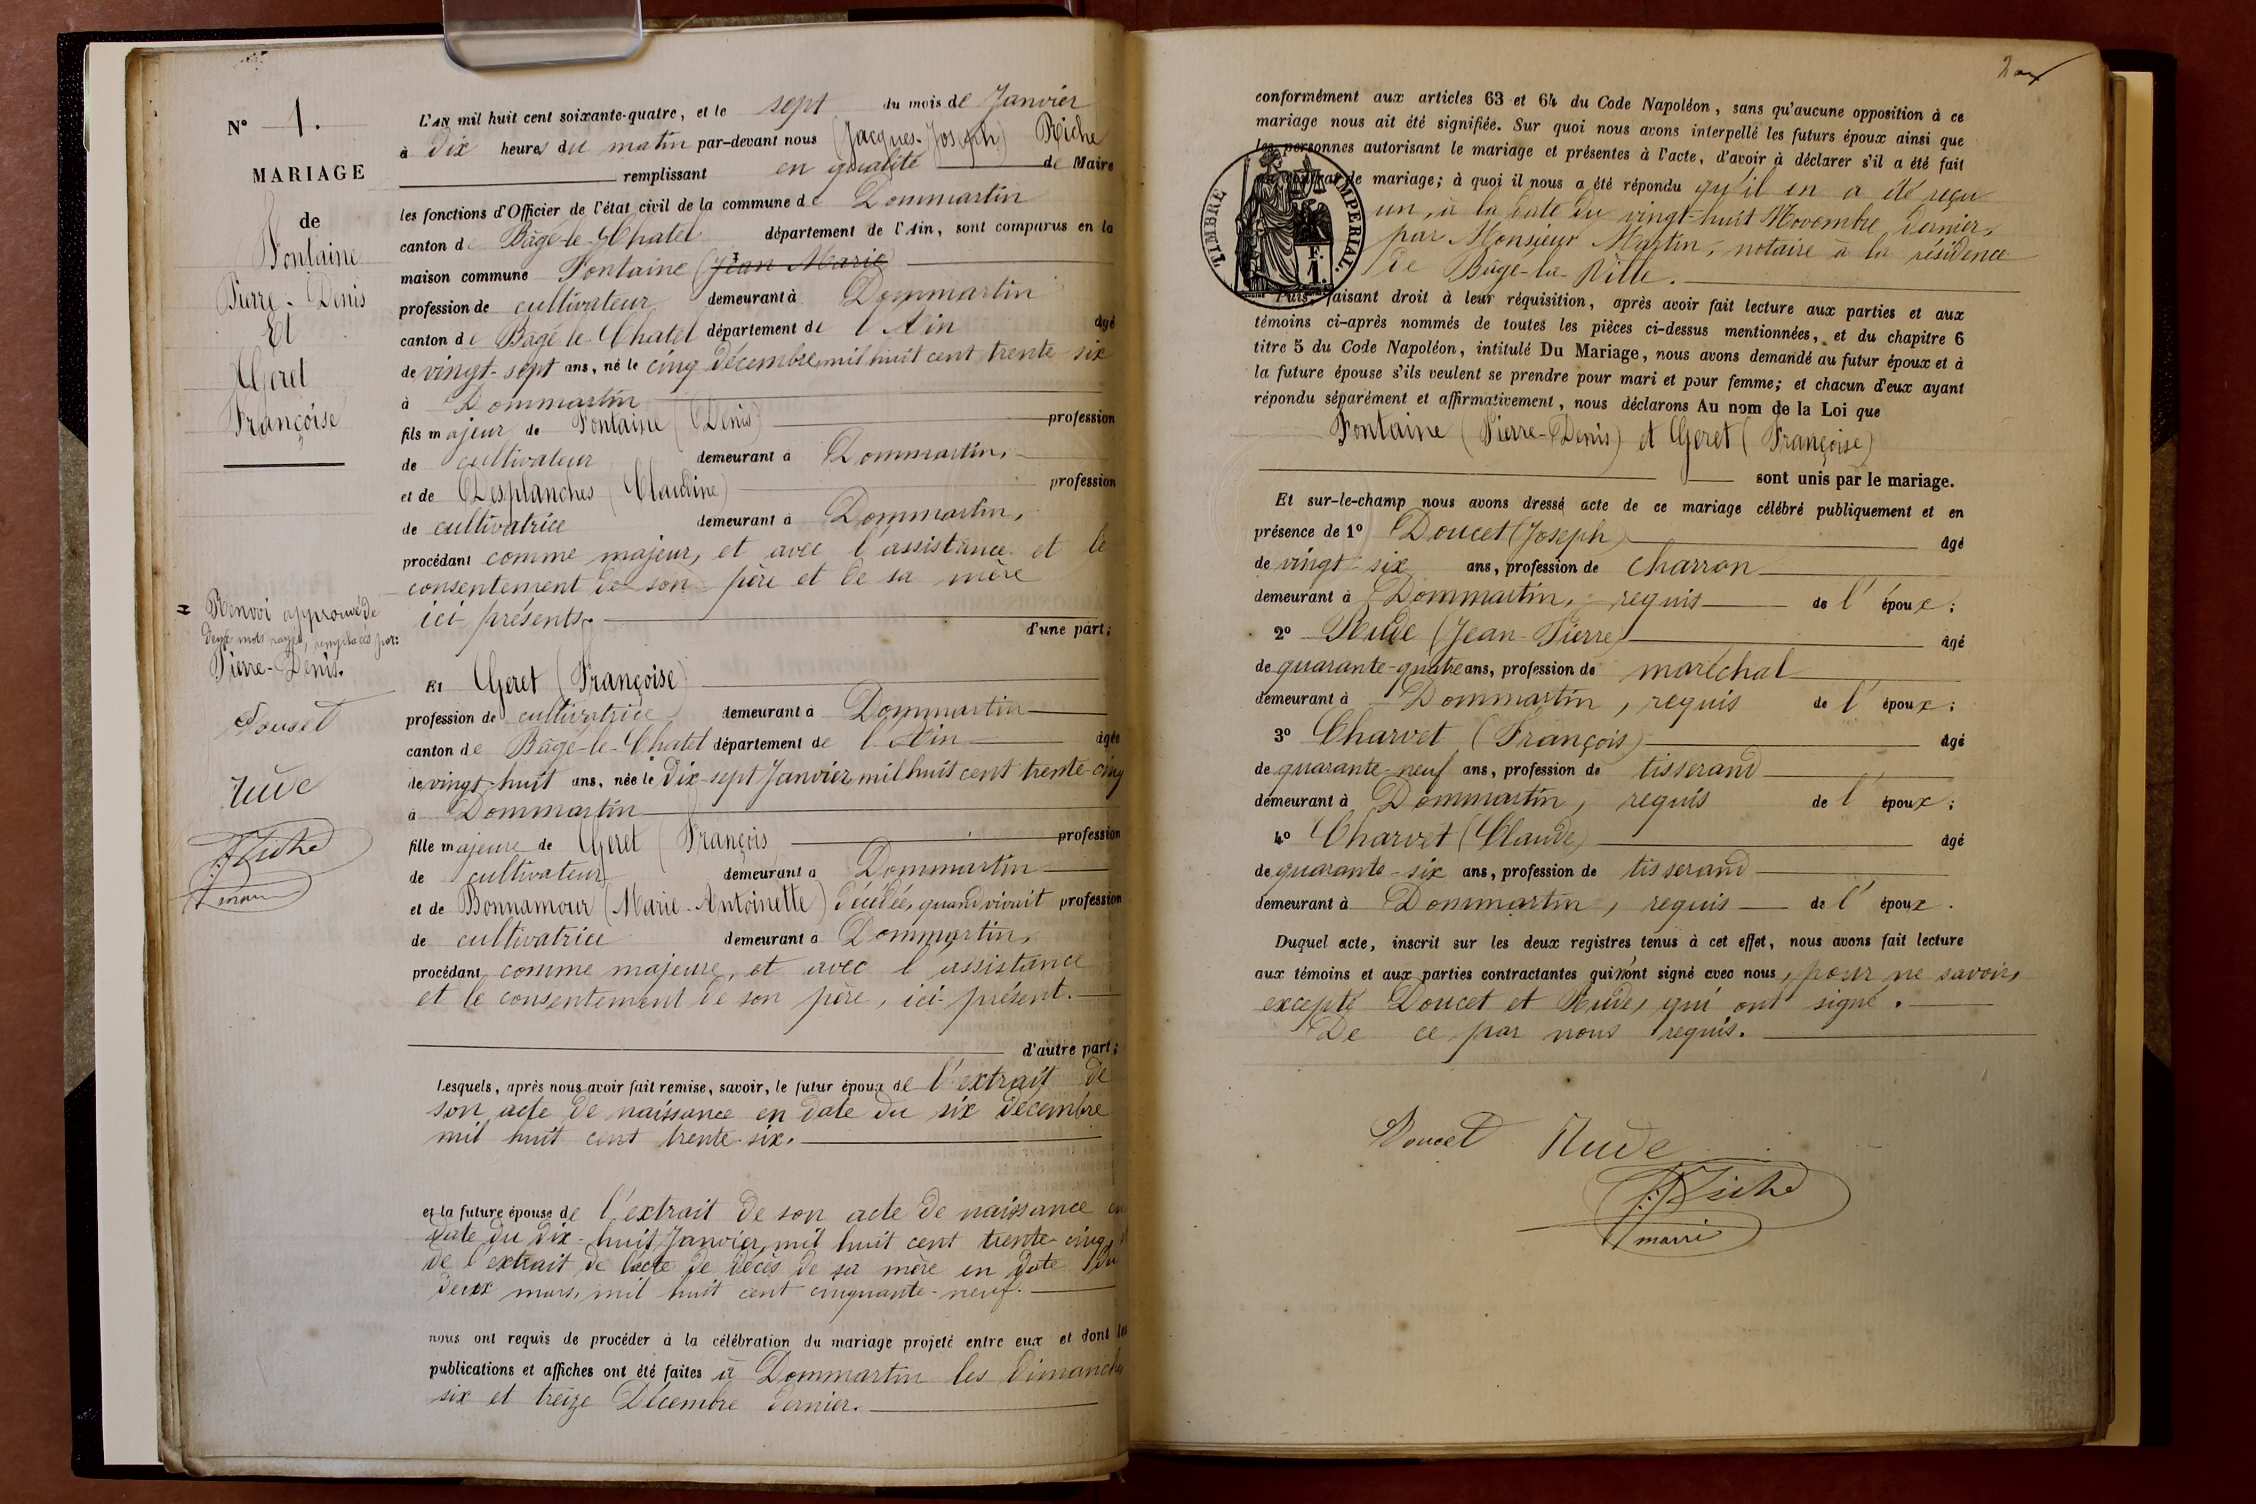 N° 1.
MARIAGE
de
Fontaine
Pierre-Denis
Et
Geret
Françoise
= Renvoi approuvé de
deux mots rayés, remplacés par:
Pierre-Denis.
Doucet
Rude
J. Riche
maire
L'AN mil huit cent soixante-quatre, et le sept du mois de Janvier
à dix heures du matin par-devant nous (Jacques-Joseph) Riche
remplissant en qualité de Maire
les fonctions d'Officier de l'état civil de la commune de Dommartin
canton de Bâgé-le-Chatel département de l'Ain, sont comparus en la
maison commune Fontaine (Jean Marie)
profession de cultivateur demeurant à Dommartin
canton de Bâgé-le-Chatel département de l'Ain âgé
de vingt-sept ans, né le cinq décembre mil huit cent trente-six
à Dommartin
fils majeur de Fontaine (Denis) profession
de cultivateur demeurant à Dommartin,
et de Desplanches (Claudine) profession
de cultivatrice demeurant à Dommartin,
procédant comme majeur, et avec l'assistance et le
consentement de son père et de sa mère
ici présents. d'une part;
Et Geret (Françoise)
profession de cultivatrice demeurant à Dommartin
canton de Bâgé-le-Chatel département de l'Ain âgée
de vingt-huit ans, née le dix-sept Janvier mil huit cent trente-cinq
à Dommartin
fille majeure de Geret (François profession
de cultivateur demeurant à Dommartin
et de Bonnamour (Marie-Antoinette) décédée, quand vivait profession
de cultivatrice demeurant à Dommartin,
procédant comme majeure, et avec l'assistance
et le consentement de son père, ici présent.
d'autre part;
Lesquels, après nous avoir fait remise, savoir, le futur époux de l'extrait de
son acte de naissance en date du six décembre
mil huit cent trente-six.
et la future épouse de l'extrait de son acte de naissance en
date du dix-huit Janvier mil huit cent trente-cinq,
de l'extrait de l'acte de décès de sa mère en date du
deux mars, mil huit cent cinquante-neuf.
nous ont requis de procéder à la célébration du mariage projeté entre eux et dont les
publications et affiches ont été faites à Dommartin les dimanches
six et treize Décembre dernier.
conformément aux articles 63 et 64 du Code Napoléon, sans qu'aucune opposition à ce
mariage nous ait été signifiée. Sur quoi nous avons interpellé les futurs époux ainsi que
les personnes autorisant le mariage et présentes à l'acte, d'avoir à déclarer s'il a été fait
de mariage; à quoi il nous a été répondu qu'il en a été reçu
un, à la date du vingt-huit Novembre dernier,
par Monsieur Martin, notaire à la résidence
de Bâgé-la-Ville.
TIMBRE IMPERIAL.
F.
1.
Puis, faisant droit à leur réquisition, après avoir fait lecture aux parties et aux
témoins ci-après nommés de toutes les pièces ci-dessus mentionnées, et du chapitre 6
titre 5 du Code Napoléon, intitulé Du Mariage, nous avons demandé au futur époux et à
la future épouse s'ils veulent se prendre pour mari et pour femme; et chacun d'eux ayant
répondu séparément et affirmativement, nous déclarons Au nom de la Loi que
Fontaine (Pierre-Denis) et Geret (Françoise)
sont unis par le mariage.
Et sur-le-champ nous avons dressé acte de ce mariage célébré publiquement et en
présence de 1° Doucet (Joseph) âgé
de vingt-six ans, profession de charron
demeurant à Dommartin, requis de l'époux;
2° Rude (Jean-Pierre) âgé
de quarante-quatre ans, profession de maréchal
demeurant à Dommartin, requis de l'époux;
3° Charvet (François) âgé
de quarante-neuf ans, profession de tisserand
demeurant à Dommartin, requis de l'époux;
4° Charvet (Claude) âgé
de quarante-six ans, profession de tisserand
demeurant à Dommartin, requis de l'époux.
Duquel acte, inscrit sur les deux registres tenus à cet effet, nous avons fait lecture
aux témoins et aux parties contractantes qui n'ont signé avec nous, pour ne savoir,
excepté Doucet et Rude, qui ont signé.
De ce par nous requis.
Doucet Rude
J. Riche
maire